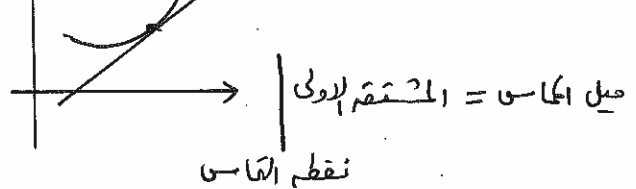 ميل المماس = المشتقة الاولى |
نقطة التماس